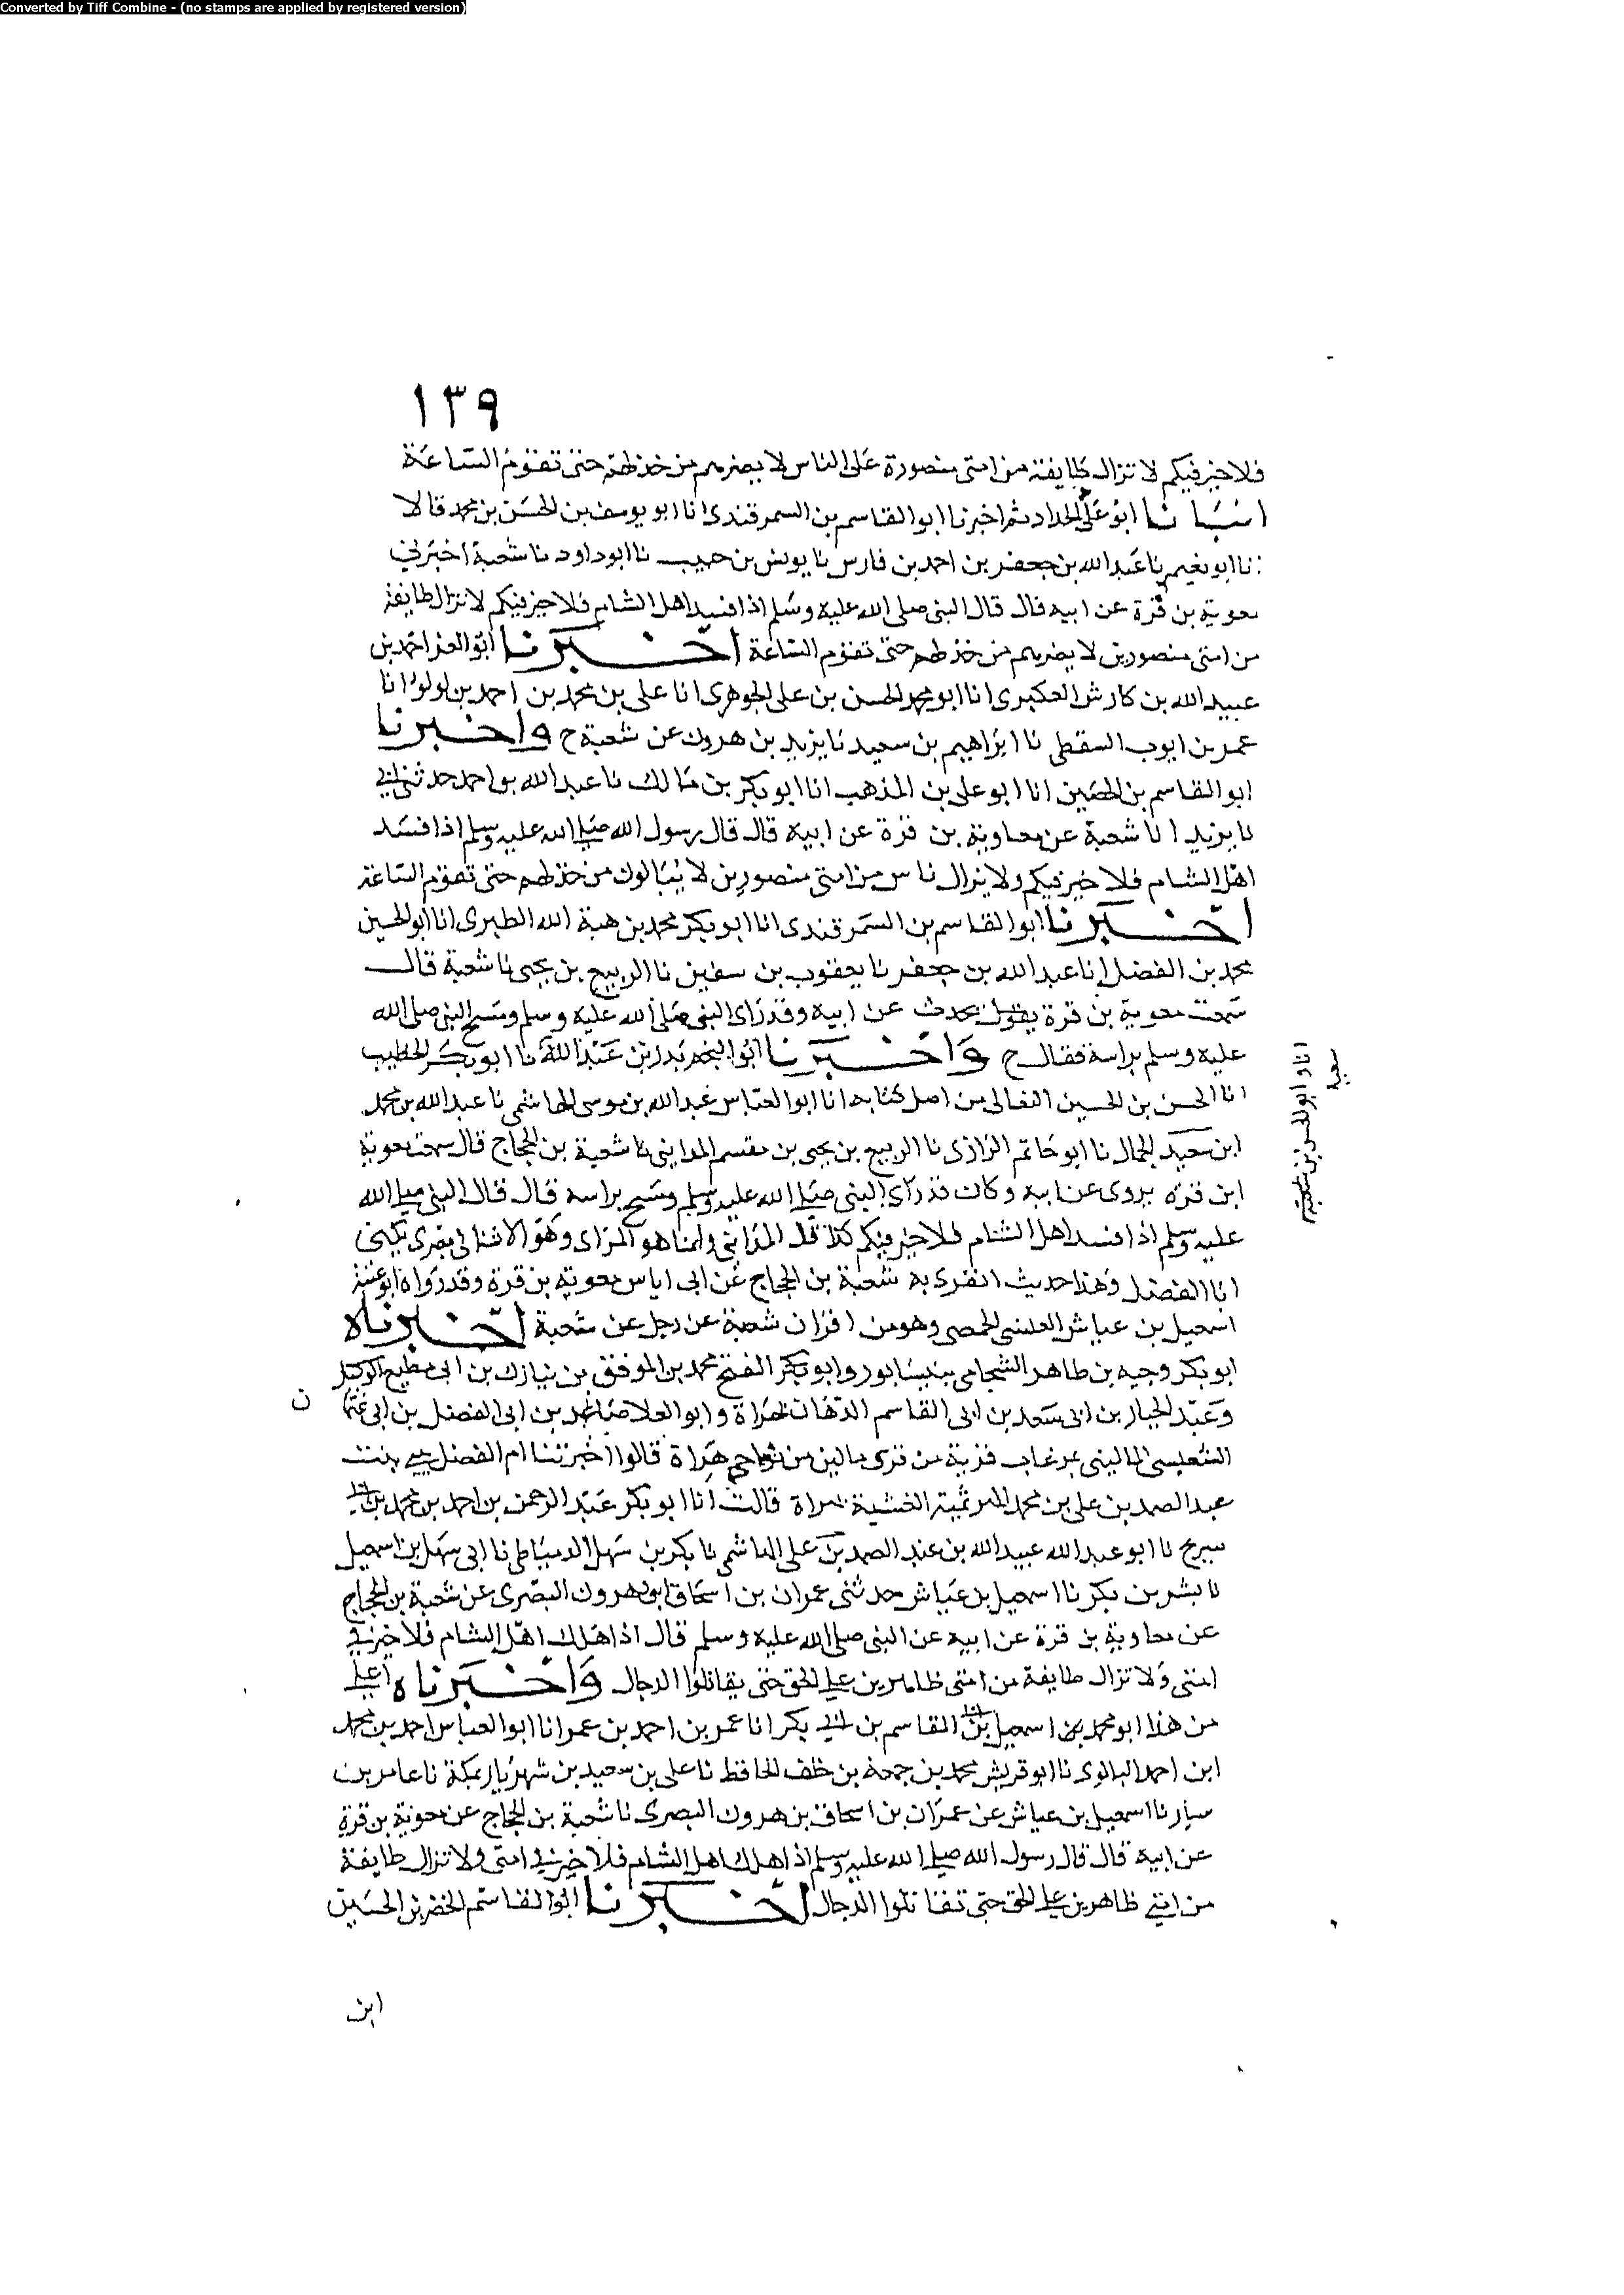 Converted by Tiff Combine - (no stamps are applied by registered version)
١٣٩
فلا خير فيكم لا تزال طايفة من امتى منصورة على الناس لا يضرهم من خذلهم حتى تقوم الساعة
انبانا ابو على الحداد ثم اخبرنا ابو القاسم بن السمرقندى انا ابو يوسف بن الحسن بن محمد قالا
نا ابو نعيم نا عبد الله بن جعفر بن احمد بن فارس نا يونس بن حبيب نا ابو داود نا شعبة اخبرنى
معوية بن قرة عن ابيه قال قال النبى صلى الله عليه وسلم اذا فسد اهل الشام فلا خير فيكم لا تزال طايفة
من امتى منصورين لا يضرهم من خذلهم حتى تقوم الساعة اخبرنا ابو العز احمد بن
عبيد الله بن كارش العكبرى انا ابو محمد الحسن بن على الجوهرى انا على بن محمد بن احمد بن لولو انا
عمر بن ايوب السقطى نا ابراهيم بن سعيد نا يزيد بن هرون عن شعبة ح واخبرنا
ابو القاسم بن الحصين انا ابو على بن المذهب انا ابو بكر بن مالك نا عبد الله بن احمد حدثنى ابى
نا يزيد انا شعبة عن معاوية بن قرة عن ابيه قال قال رسول الله صلى الله عليه وسلم اذا فسد
اهل الشام فلا خير فيكم ولا يزال ناس من امتى منصورين لا يبالون من خذلهم حتى تقوم الساعة
اخبرنا ابو القاسم بن السمرقندى انا ابو بكر محمد بن هبة الله الطبرى انا ابو الحسين
محمد بن الفضل انا عبد الله بن جعفر نا يعقوب بن سفين نا الربيع بن يحيى نا شعبة قال
سمعت معوية بن قرة يقول يحدث عن ابيه وقد راى النبى صلى الله عليه وسلم ومسح النبى صلى الله
عليه وسلم براسه فقال ح واخبرنا ابو النجم بدر بن عبد الله نا ابو بكر الخطيب
انا الحسن بن الحسين النعالى من اصل كتابه انا ابو العباس عبد الله بن موسى الهاشمى نا عبد الله بن محمد
ابن سعيد الجمال نا ابو حاتم الرازى نا الربيع بن يحيى بن مقسم المداينى نا شعبة بن الحجاج قال سمعت معوية
ابن قرة يروى عن ابيه وكان قد راى النبى صلى الله عليه وسلم ومسح براسه قال قال النبى صلى الله
عليه وسلم اذا فسد اهل الشام فلا خير فيكم كذا قال المداينى وانما هو المراى وهو الاشنانى بصرى يكنى
انا الفضل وهذا حديث انفرد به شعبة بن الحجاج عن ابى اياس معوية بن قرة وقد رواه ابو عتبة
اسمعيل بن عياش العنسى الحمصى وهو من اقران شعبة عن رجل عن شعبة اخبرناه
ابو بكر وجيه بن طاهر الشحامى بنيسابور وابو بكر الفتح محمد بن الموفق بن نيازك بن ابى مطيع الوكيل
وعبد الجبار بن ابى سعد بن ابى القاسم الدهان بهراة وابو العلا صاعد بن ابى الفضل بن ابى عثمان
المالينى قرية من قرى مالين من نواحى هراة قالوا اخبرتنا ام الفضل بيبى بنت
عبد الصمد بن على بن محمد الهرثمية بهراة قالت انا ابو بكر عبد الرحمن بن احمد بن محمد بن ابى
سريح نا ابو عبد الله عبيد الله بن عبد الصمد بن على الهاشمى نا بكر بن سهل الدمياطى نا ابى سهل بن اسمعيل
نا بشر بن بكر نا اسمعيل بن عياش حدثنى عمران بن اسحاق ابو هرون البصرى عن شعبة بن الحجاج
عن معاوية بن قرة عن ابيه عن النبى صلى الله عليه وسلم قال اذا هلك اهل الشام فلا خير فى
امتى ولا تزال طايفة من امتى ظاهرين على الحق حتى يقاتلوا الدجال واخبرناه اعلى
من هذا ابو محمد بن اسمعيل بن القاسم بن ابى بكر انا عمر بن احمد بن عمر انا ابو العباس احمد بن محمد
ابن احمد البالوى نا ابو قريش محمد بن جمعة بن خلف الحافظ نا على بن سعيد بن شهريار بمكة نا عامر بن
سيار نا اسمعيل بن عياش عن عمران بن اسحاق بن هرون البصرى نا شعبة بن الحجاج عن معوية بن قرة
عن ابيه قال قال رسول الله صلى الله عليه وسلم اذا هلك اهل الشام فلا خير فى امتى ولا تزال طايفة
من امتى ظاهرين على الحق حتى تقاتلوا الدجال اخبرنا ابو القاسم الخضر بن الحسين
ابن